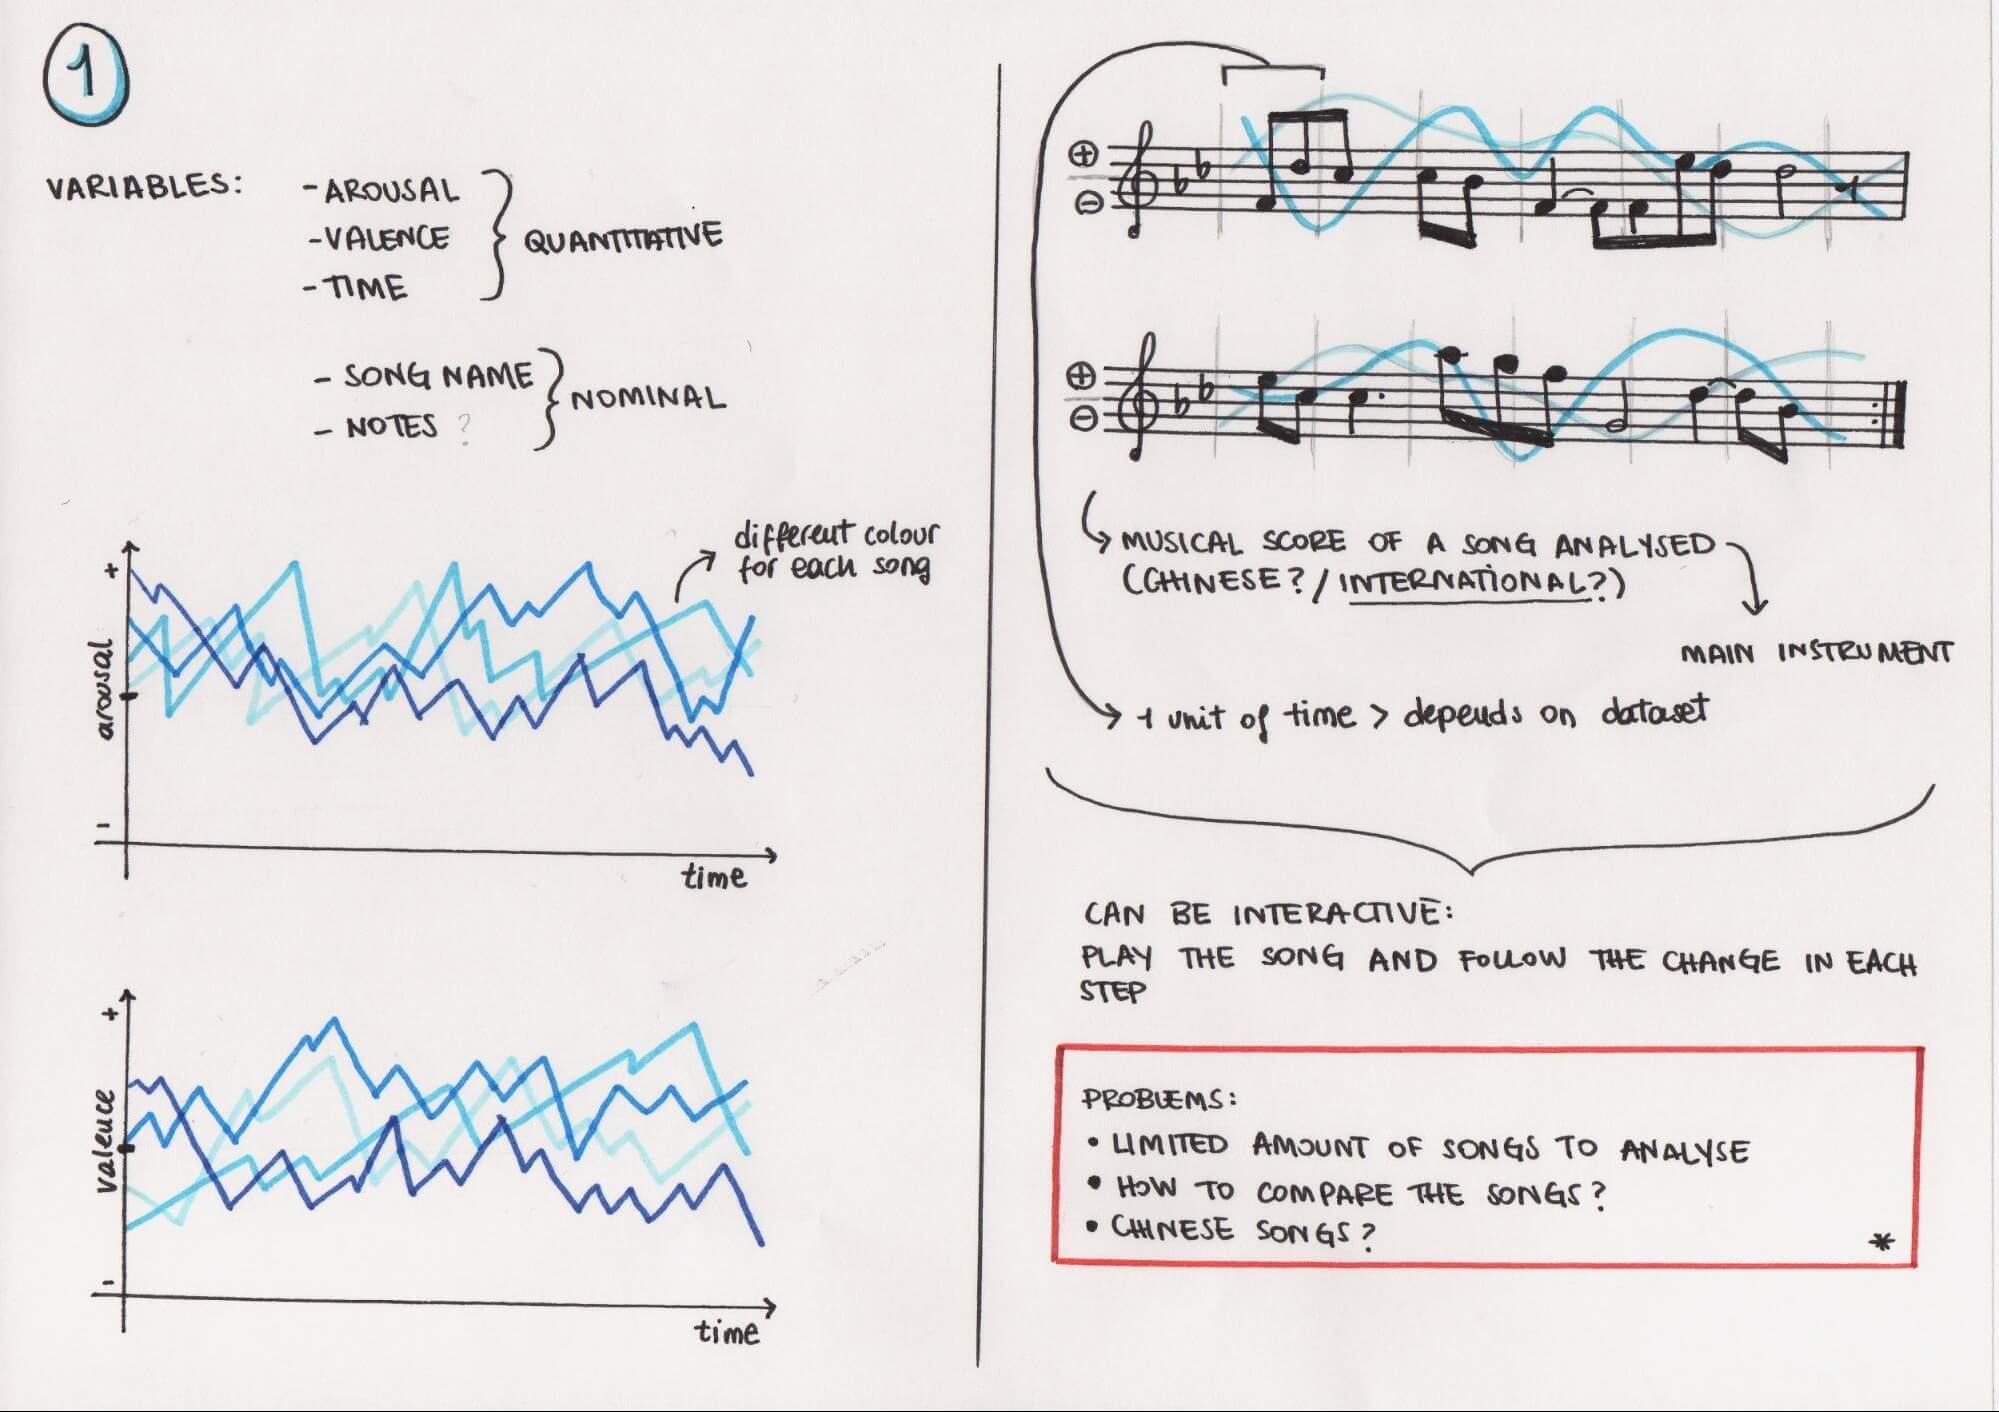 1
VARIABLES:
- AROUSAL
- VALENCE
- TIME
QUANTITATIVE
- SONG NAME
- NOTES ?
NOMINAL
different colour
for each song
+
arousal
-
time
+
valence
-
time
+
-
+
-
MUSICAL SCORE OF A SONG ANALYSED
(CHINESE? / INTERNATIONAL?)
MAIN INSTRUMENT
1 unit of time > depends on dataset
CAN BE INTERACTIVE:
PLAY THE SONG AND FOLLOW THE CHANGE IN EACH
STEP
PROBLEMS:
• LIMITED AMOUNT OF SONGS TO ANALYSE
• HOW TO COMPARE THE SONGS?
• CHINESE SONGS?
*